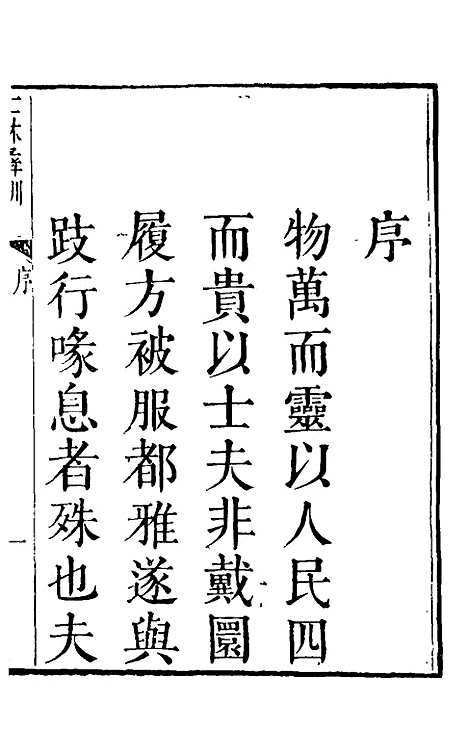 序
物萬而靈以人民四
而貴以士夫非戴圜
履方被服都雅遂與
跂行喙息者殊也夫
序
一